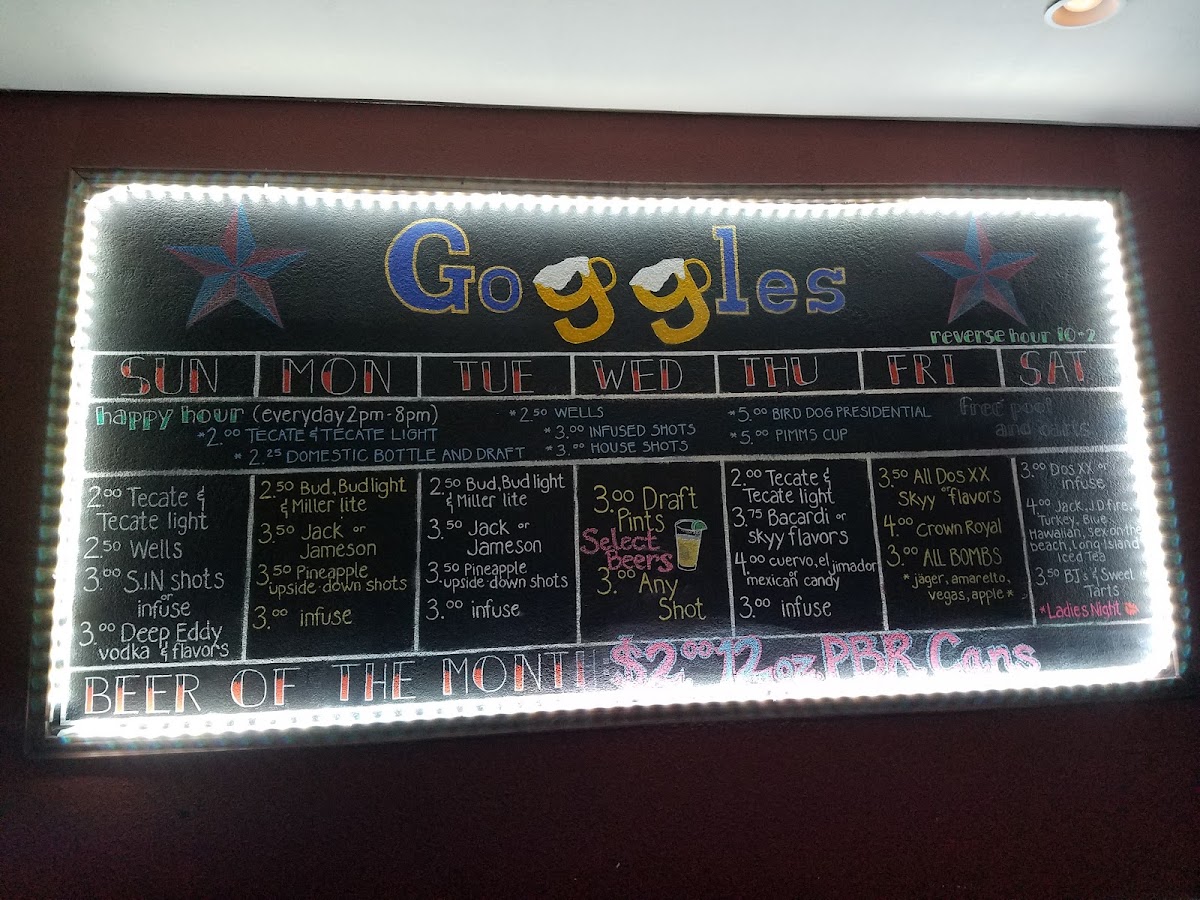 Goggles
reverse hour 10-2
SUN MON TUE WED THU FRI SAT
happy hour (everyday 2pm-8pm)
*2.00 TECATE & TECATE LIGHT
*2.25 DOMESTIC BOTTLE AND DRAFT
*2.50 WELLS
*3.00 INFUSED SHOTS
*3.00 HOUSE SHOTS
*5.00 BIRD DOG PRESIDENTIAL
*5.00 PIMMS CUP
free pool
and darts
2.00 Tecate &
Tecate light
2.50 Wells
3.00 S.I.N shots
or
infuse
3.00 Deep Eddy
vodka & flavors
2.50 Bud, Bud light
& Miller lite
3.50 Jack or
Jameson
3.50 Pineapple
upside-down shots
3.00 infuse
2.50 Bud, Bud light
& Miller lite
3.50 Jack or
Jameson
3.50 Pineapple
upside-down shots
3.00 infuse
3.00 Draft
Pints
Select
Beers
3.00 Any
Shot
2.00 Tecate &
Tecate light
3.75 Bacardi or
skyy flavors
4.00 cuervo, el jimador
or
mexican candy
3.00 infuse
3.50 All Dos XX
or
Skyy flavors
4.00 Crown Royal
3.00 ALL BOMBS
*jäger, amaretto,
vegas, apple*
3.00 Dos XX or
infuse
4.00 Jack, J.D fire,
Turkey, Blue
Hawaiian, Sex on the
beach, Long Island
iced Tea
3.50 BJ's & Sweet
Tarts
*Ladies Night
BEER OF THE MONTH $2.00 12 oz PBR Cans